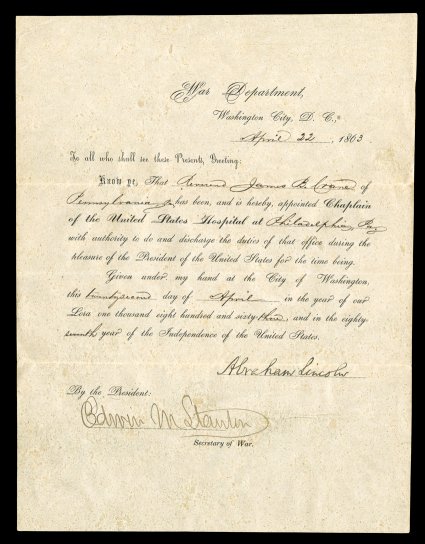 War Department,
Washington City, D. C.,
April 22, 1863
To all who shall see these Presents, Greeting:
Know ye, That Reverend James B. Crane of
Pennsylvania has been, and is hereby, appointed Chaplain
of the United States Hospital at Philadelphia, Pa
with authority to do and discharge the duties of that office during the
pleasure of the President of the United States for the time being.
Given under my hand at the City of Washington,
this twentysecond day of April in the year of our
Lord one thousand eight hundred and sixty three, and in the eighty-
seventh year of the Independence of the United States.
Abraham Lincoln
By the President:
Edwin M Stanton
Secretary of War.